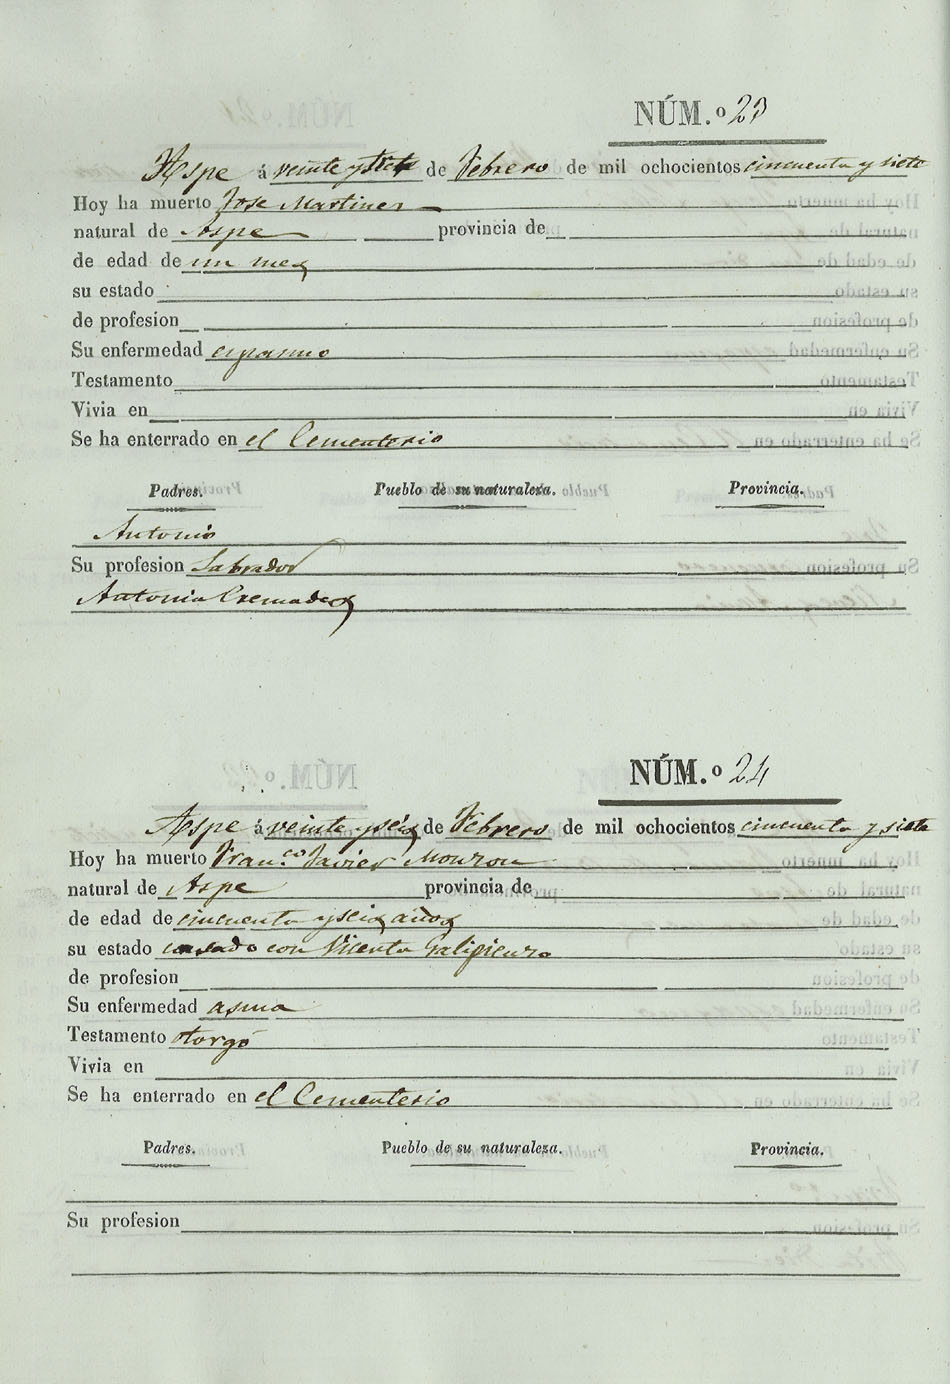 NÚM.º 23
Aspe á veinte y siete de Febrero de mil ochocientos cincuenta y siete
Hoy ha muerto Jose Martinez
natural de Aspe provincia de
de edad de un mes
su estado
de profesion
Su enfermedad espasmo
Testamento
Vivia en
Se ha enterrado en el Cementerio
Padres. Pueblo de su naturaleza. Provincia.
Antonio
Su profesion Labrador
Antonia Cremades
NÚM.º 24
Aspe á veinte y seis de Febrero de mil ochocientos cincuenta y siete
Hoy ha muerto Fran.co Javier Monzon
natural de Aspe provincia de
de edad de cincuenta y seis años
su estado casado con Vicenta Galipienzo
de profesion
Su enfermedad asma
Testamento otorgó
Vivia en
Se ha enterrado en el Cementerio
Padres. Pueblo de su naturaleza. Provincia.
Su profesion